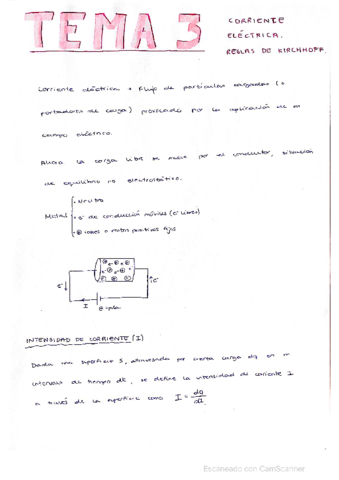 TEMA 3
CORRIENTE
ELÉCTRICA.
REGLAS DE KIRCHHOFF.
Corriente eléctrica → flujo de partículas cargadas (→
portadores de carga) provocado por la aplicación de un
campo eléctrico.
Ahora la carga libre se mueve por el conductor, situación
de equilibrio no electrostático.
Metal
• Neutro
• e⁻ de conducción móviles (e⁻ libres)
• ⊕ iones o restos positivos fijos
e⁻
e⁻
I
INTENSIDAD DE CORRIENTE (I)
Dada una superficie S, atravesada por cierta carga dq en un
intervalo de tiempo dt, se define la intensidad de corriente I
a través de la superficie como I = dq
Escaneado con CamScanner